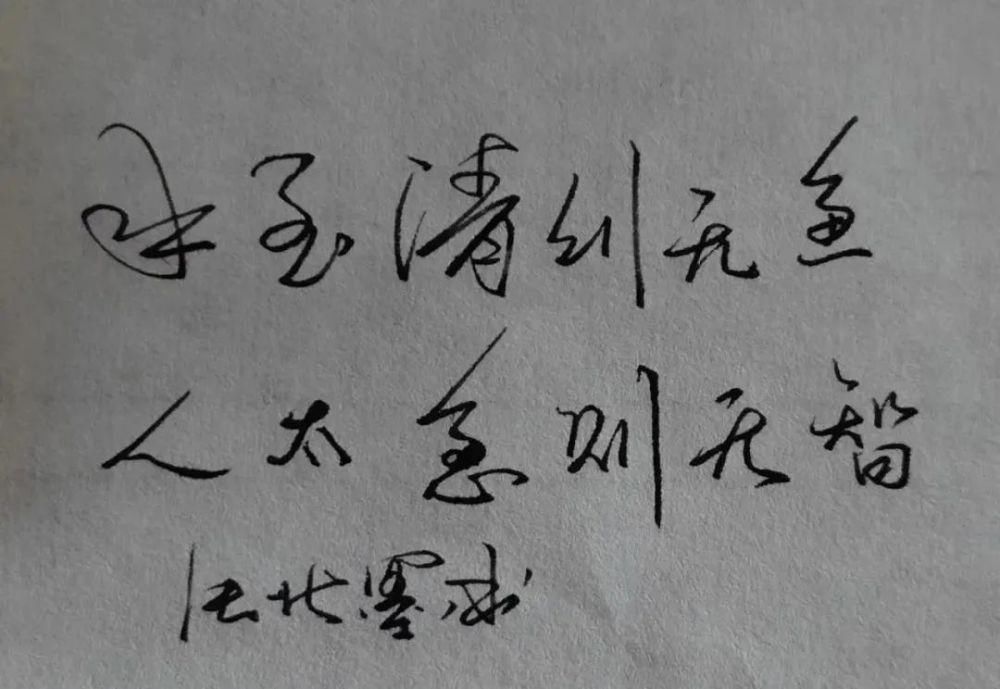 水至清则无鱼
人太急则无智
北墨